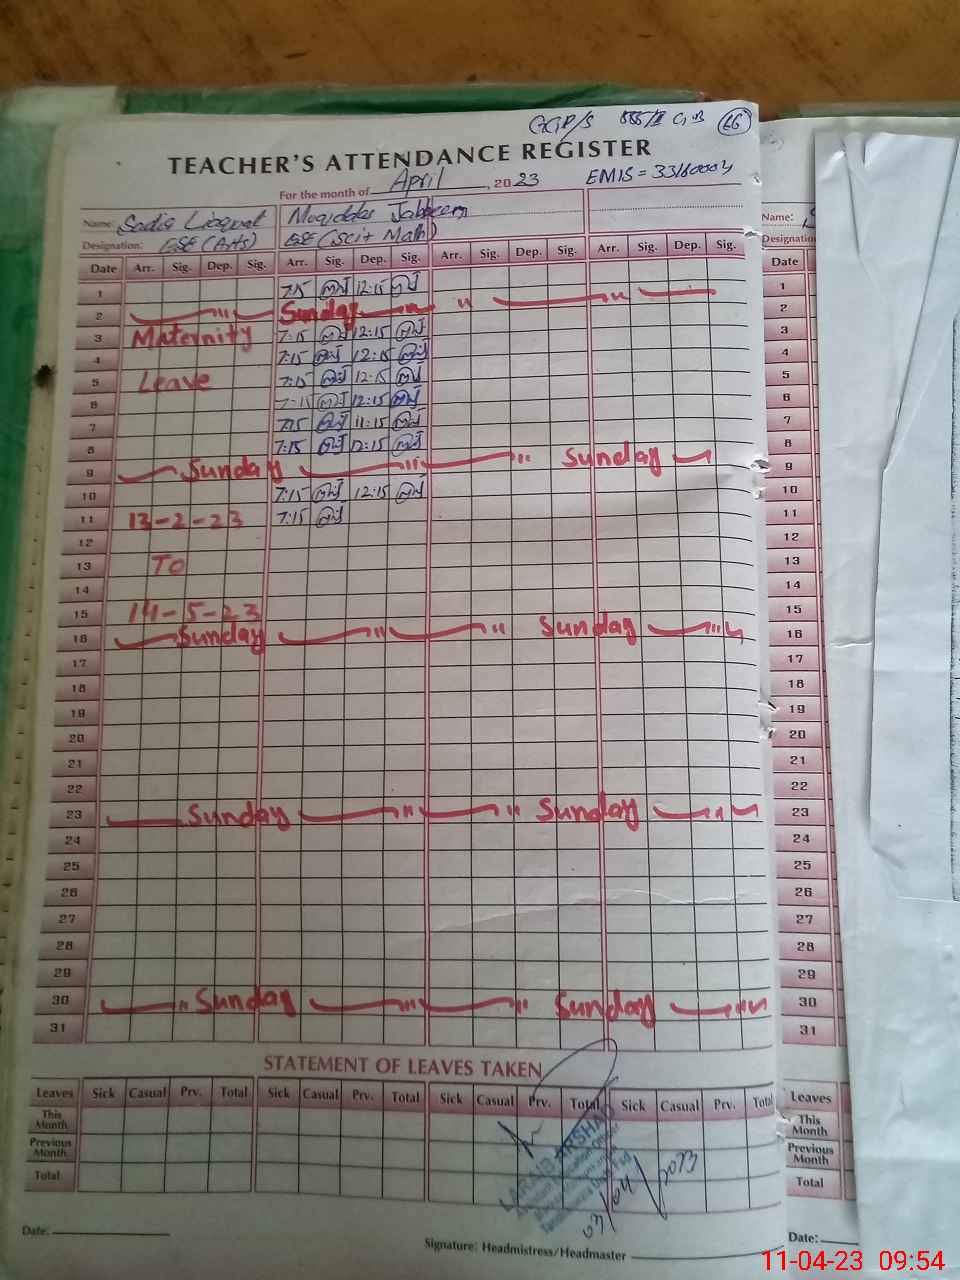 GGP/S 555/II G.B 66
TEACHER'S ATTENDANCE REGISTER
For the month of April, 2023 EMIS = 33180004
Name: Sadia Liaquat Muqiddas Jabbeen
Designation: ESE (Arts) ESE (Sci+Math)
Date Arr. Sig. Dep. Sig. Arr. Sig. Dep. Sig. Arr. Sig. Dep. Sig. Arr. Sig. Dep. Sig.
1 7:15 12:15
2 Sunday
3 Maternity 7:15 12:15
4 7:15 12:15
5 Leave 7:15 12:15
6 7:15 12:15
7 7:15 11:15
8 7:15 12:15
9 Sunday Sunday
10 7:15 12:15
11 13-2-23 7:15
12
13 To
14
15 14-5-23
16 Sunday Sunday
17
18
19
20
21
22
23 Sunday Sunday
24
25
26
27
28
29
30 Sunday Sunday
31
STATEMENT OF LEAVES TAKEN
Leaves Sick Casual Prv. Total Sick Casual Prv. Total Sick Casual Prv. Total Sick Casual Prv. Total
This Month
Previous Month
Total
ARSHAD
03/04/2023
Date:
Signature: Headmistress/Headmaster
Name:
Designation
Date
1
2
3
4
5
6
7
8
9
10
11
12
13
14
15
16
17
18
19
20
21
22
23
24
25
26
27
28
29
30
31
Leaves
This Month
Previous Month
Total
Date:
11-04-23 09:54